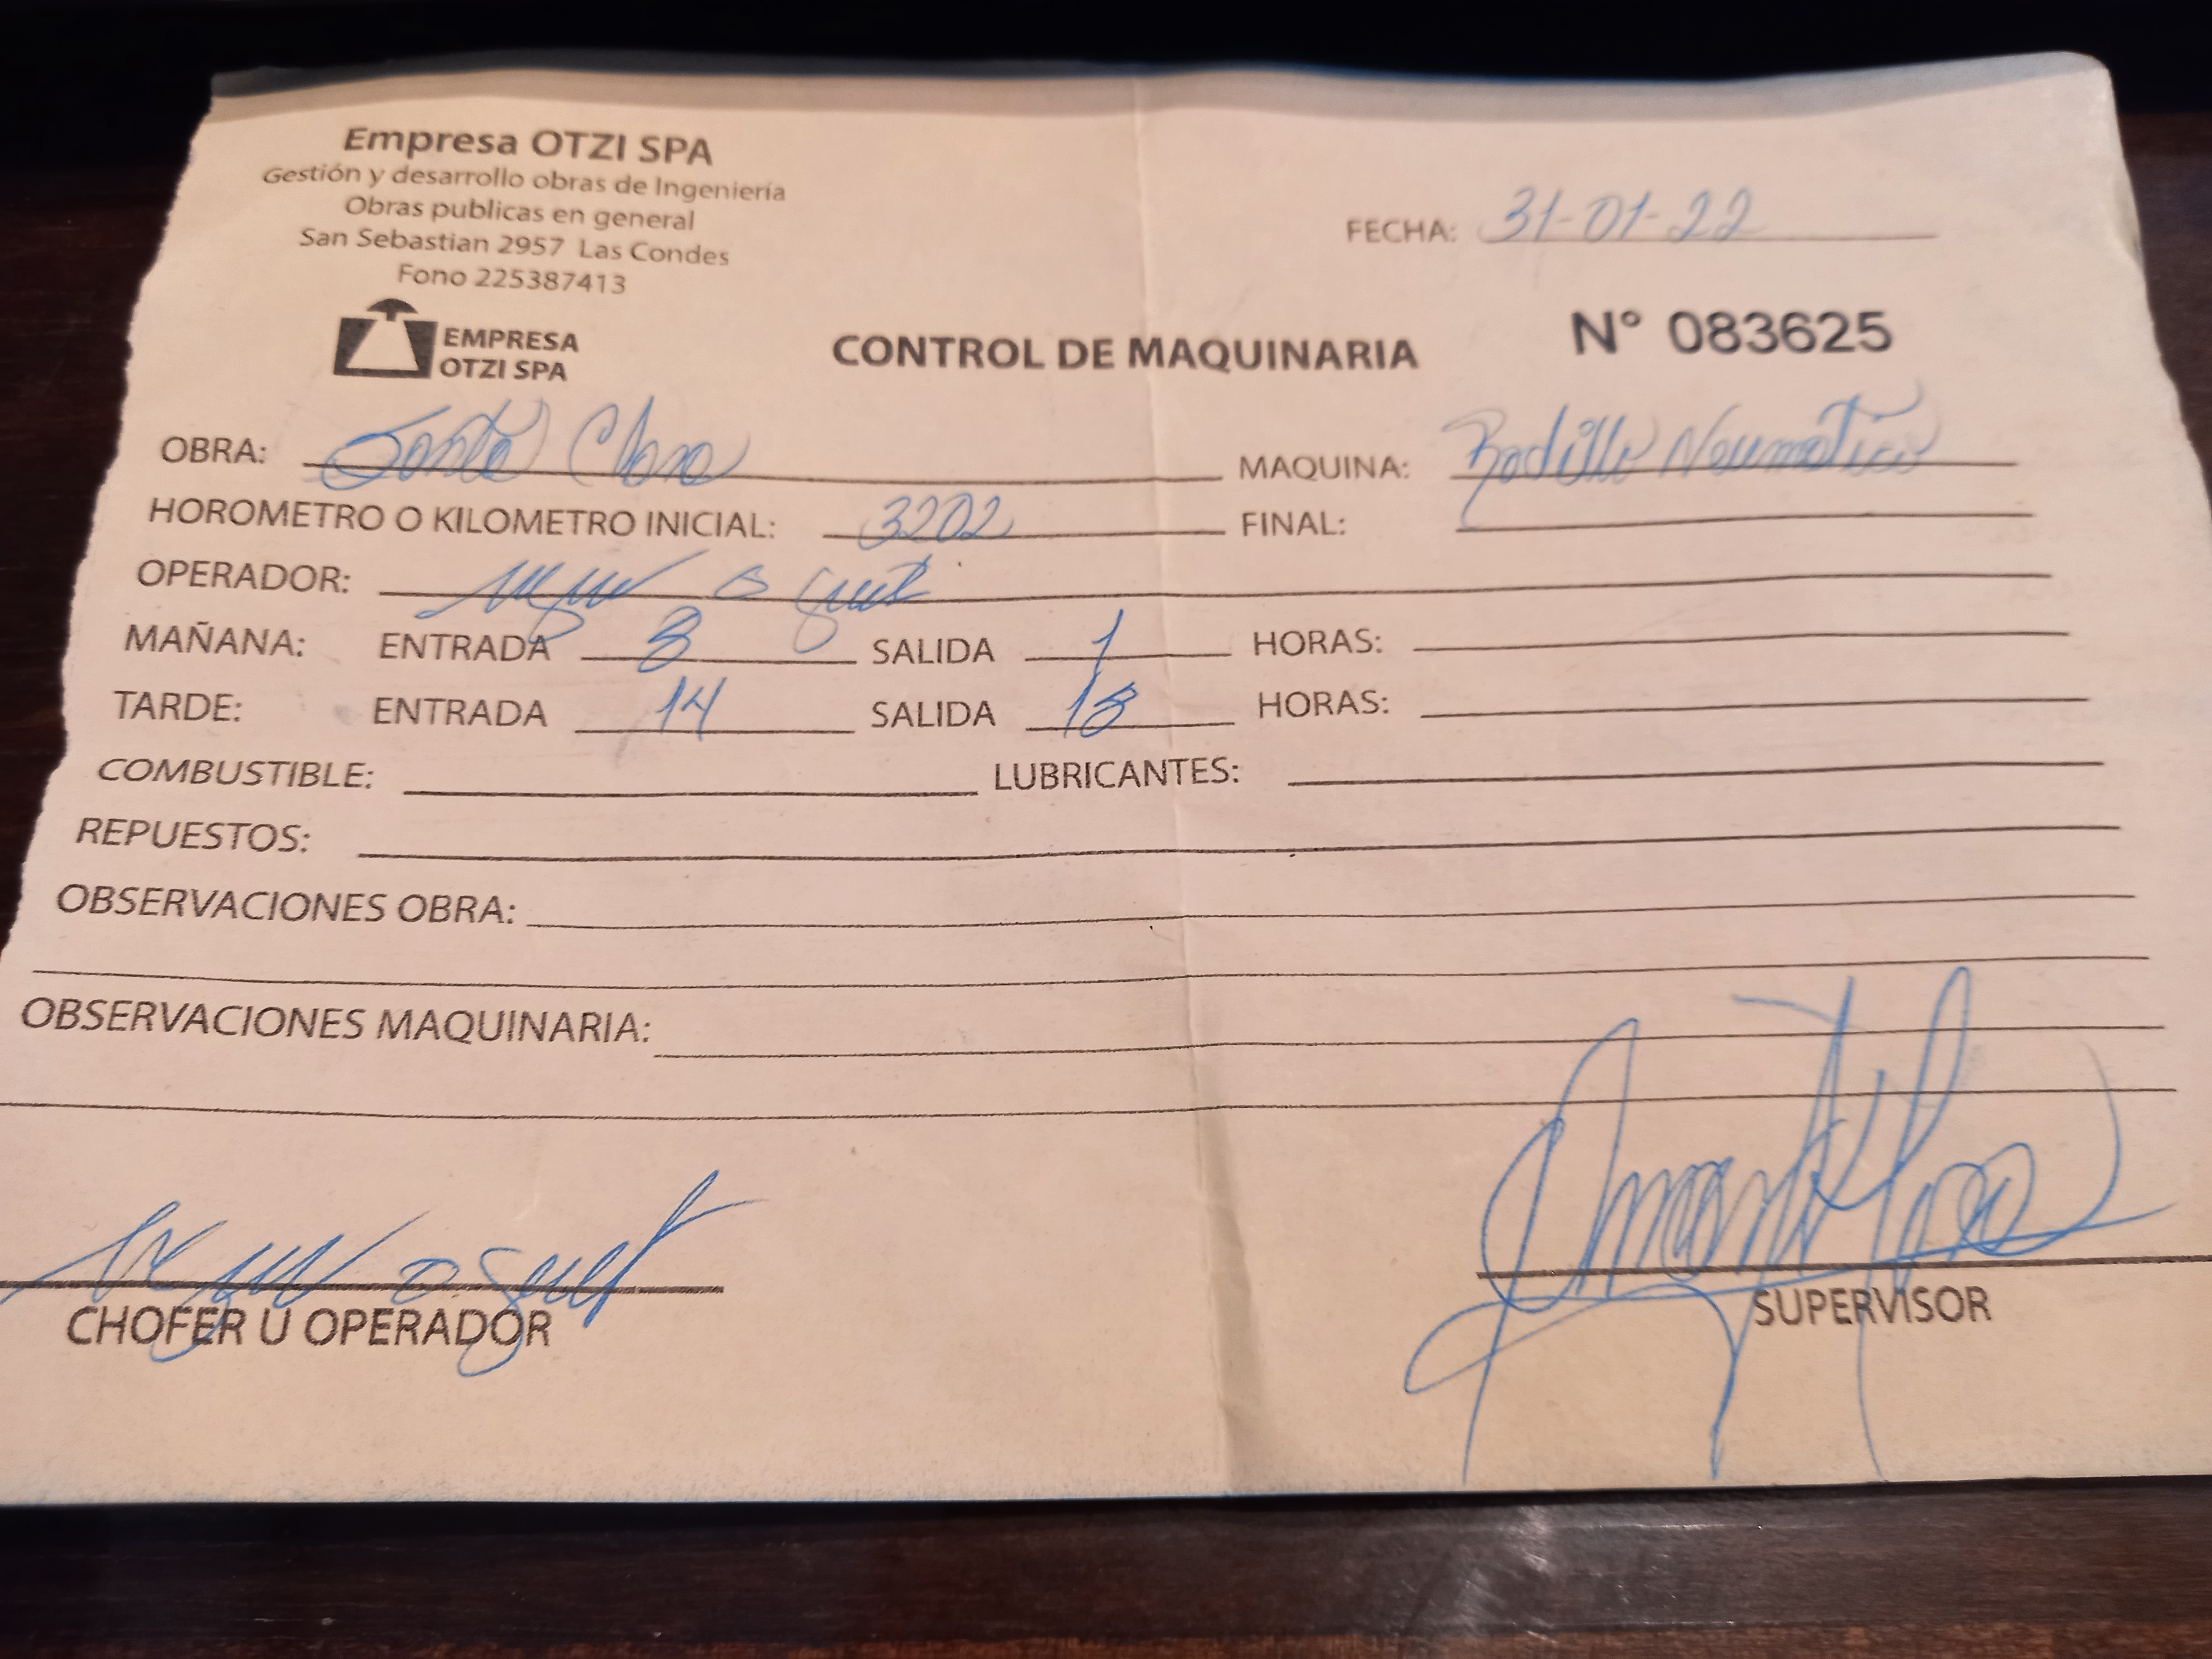 Empresa OTZI SPA
Gestión y desarrollo obras de Ingeniería
Obras publicas en general
San Sebastian 2957 Las Condes
Fono 225387413
FECHA: 31-01-22
EMPRESA
OTZI SPA
CONTROL DE MAQUINARIA
N° 083625
OBRA: Santa Clara MAQUINA: Rodillo Neumatico
HOROMETRO O KILOMETRO INICIAL: 3202 FINAL:
OPERADOR:
MAÑANA: ENTRADA 8 SALIDA 1 HORAS:
TARDE: ENTRADA 14 SALIDA 18 HORAS:
COMBUSTIBLE: LUBRICANTES:
REPUESTOS:
OBSERVACIONES OBRA:
OBSERVACIONES MAQUINARIA:
CHOFER U OPERADOR
SUPERVISOR